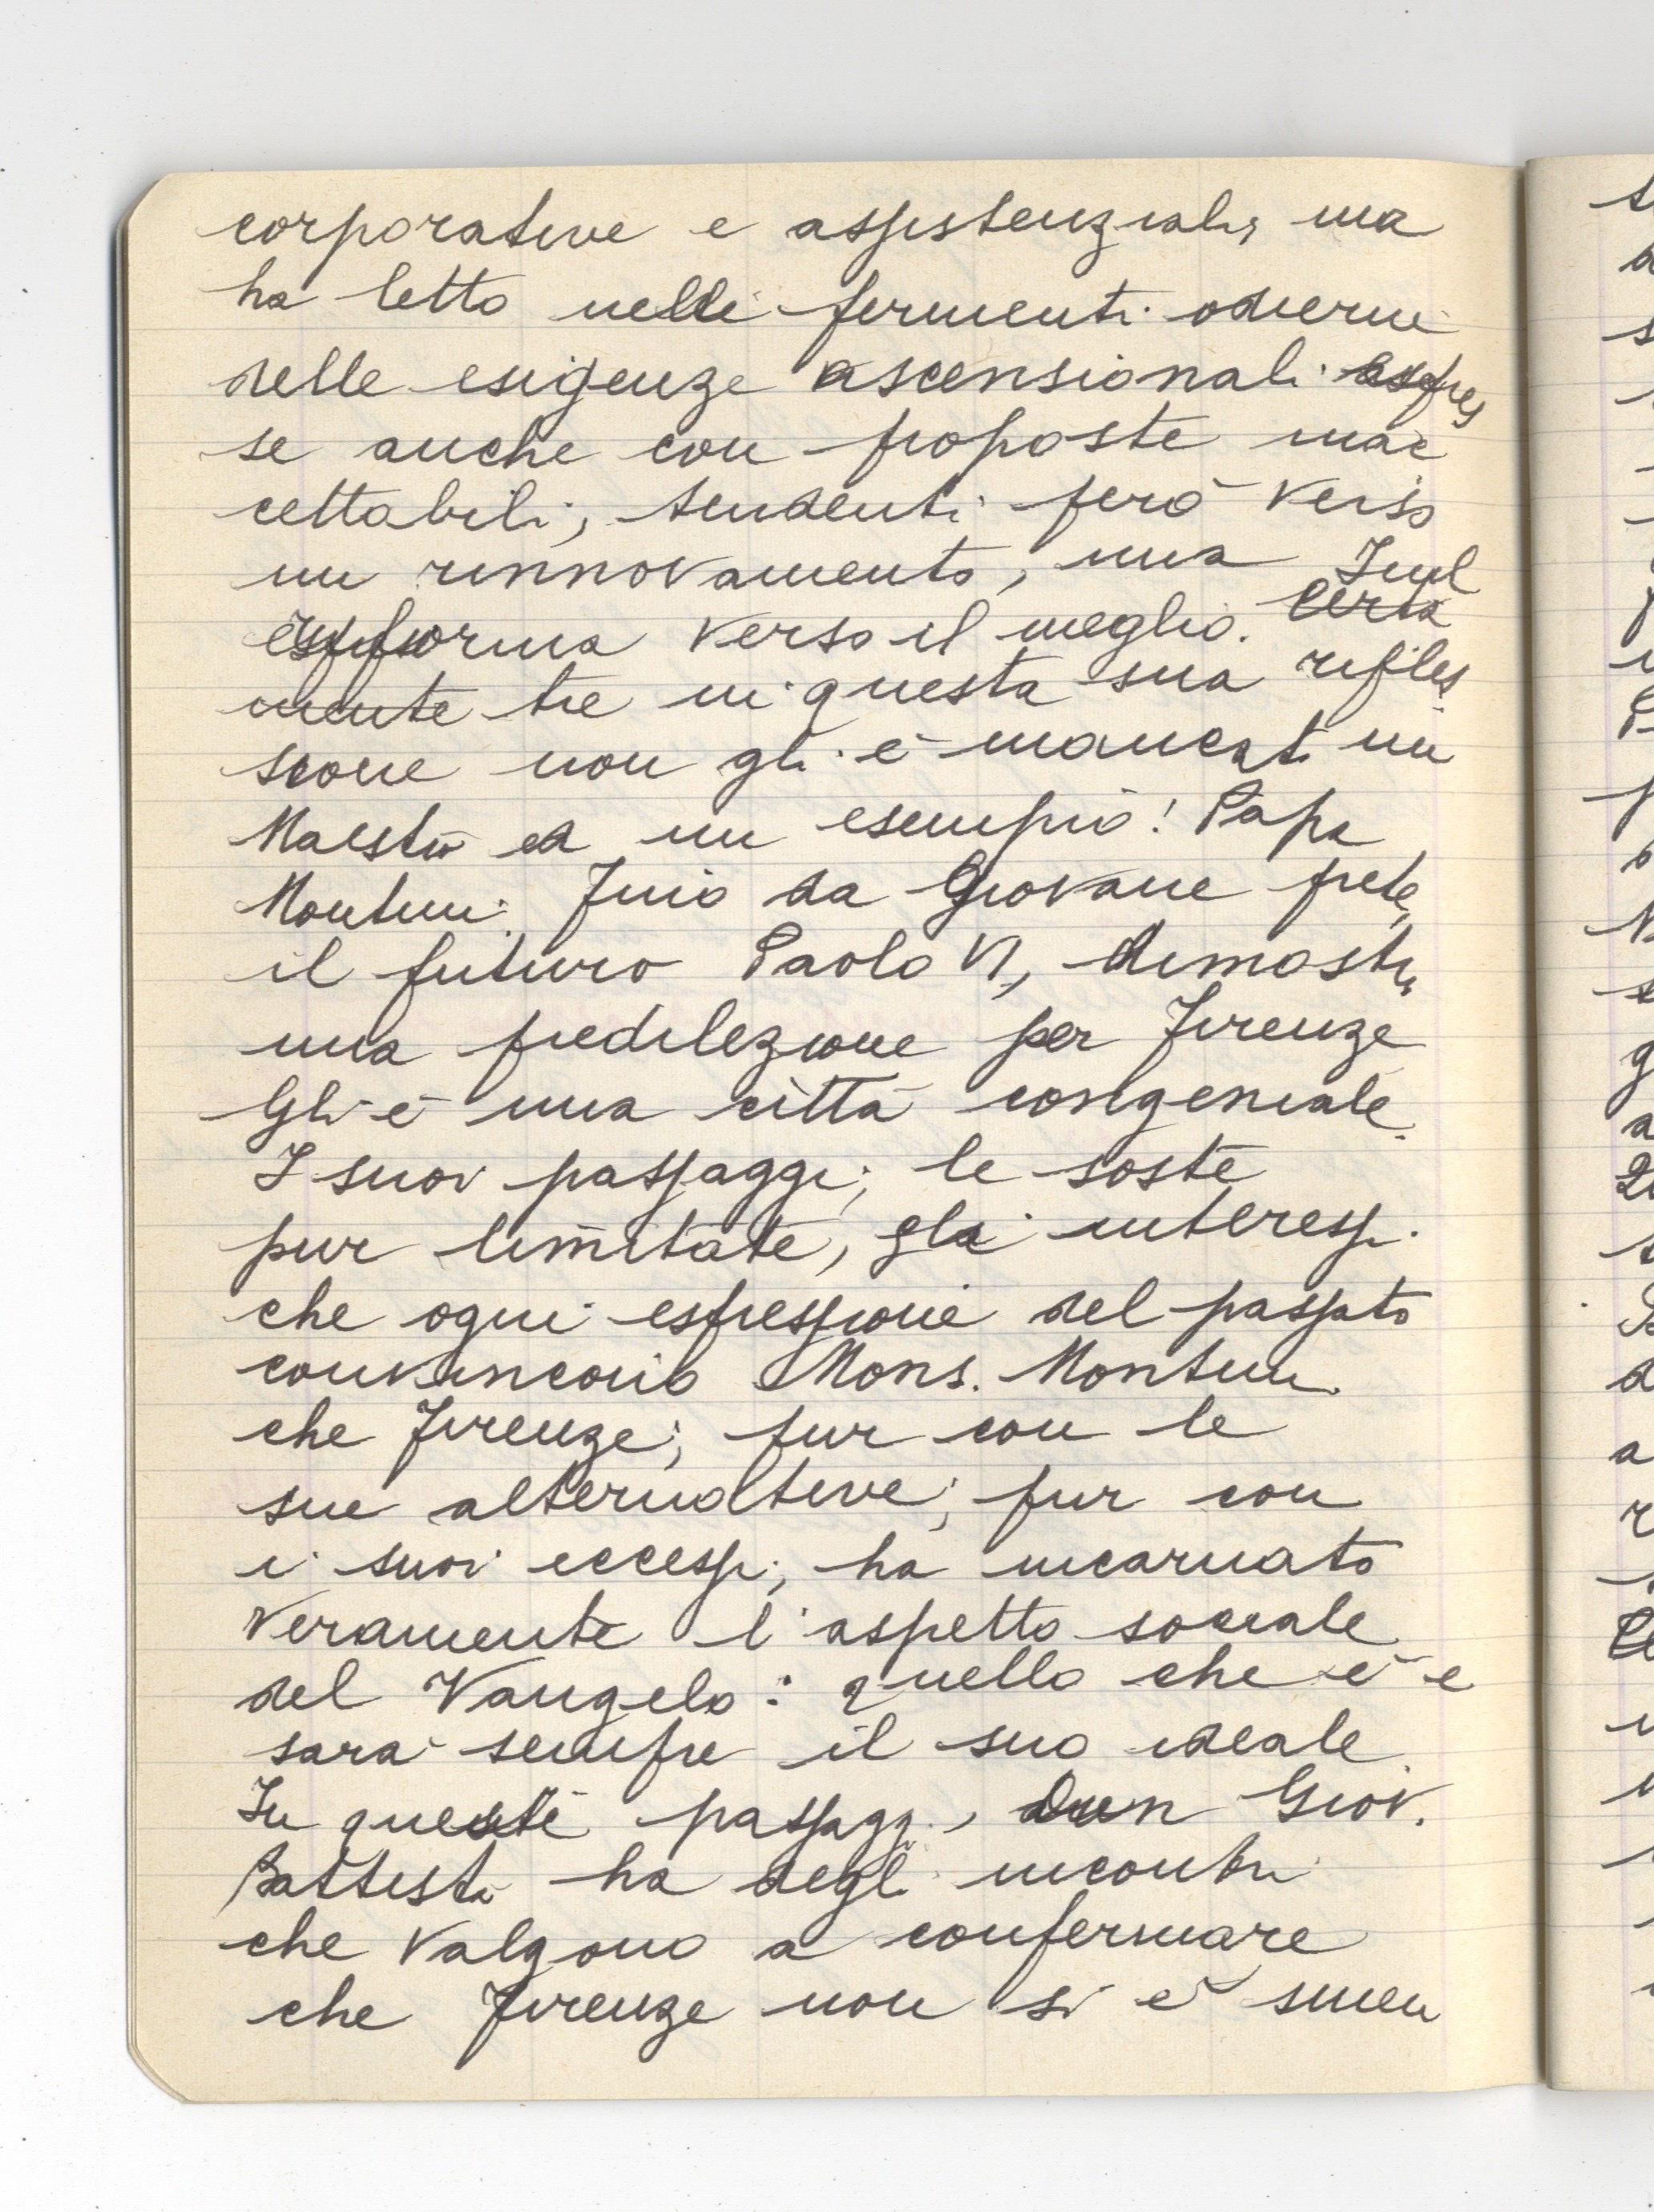 corporative e assistenziali, ma
ha letto nelle fermenti odierni
delle esigenze ascensionali espres
se anche con proposte inac
cettabili, tendenti però verso
un rinnovamento, una
verso il meglio.
in questa sua rifles
sione non gli è mancato un
Maestro ed un esempio! Papa
Montini. Fino da Giovane prete,
il futuro Paolo VI, dimostra
una predilezione per Firenze
Gli è una città congeniale.
I suoi passaggi, le soste
pur limitate, gli interessi
che ogni espressione del passato
convincono Mons. Montini
che Firenze, pur con le
sue alternative, pur con
i suoi eccessi, ha incarnato
veramente l'aspetto sociale
del Vangelo: quello che è e
sarà sempre il suo ideale
In questi passaggi, Don Giov.
Battista ha degli incontri
che valgono a confermare
che Firenze non si è smen